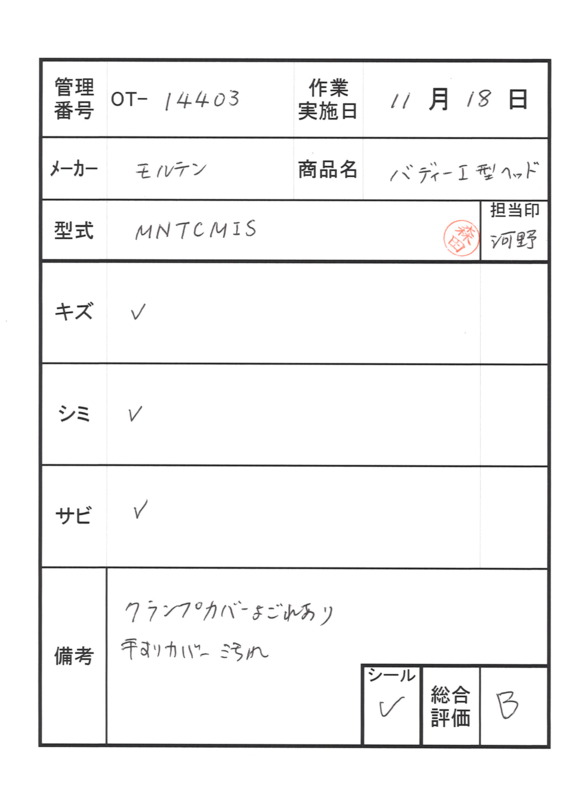 管理番号 OT- 14403 作業実施日 11 月 18 日
メーカー モルテン 商品名 バディーI型ヘッド
型式 MNTCMIS 森田 担当印 河野
キズ ✓
シミ ✓
サビ ✓
備考
クランプカバーよごれあり
手すりカバー 汚れ
シール ✓ 総合評価 B